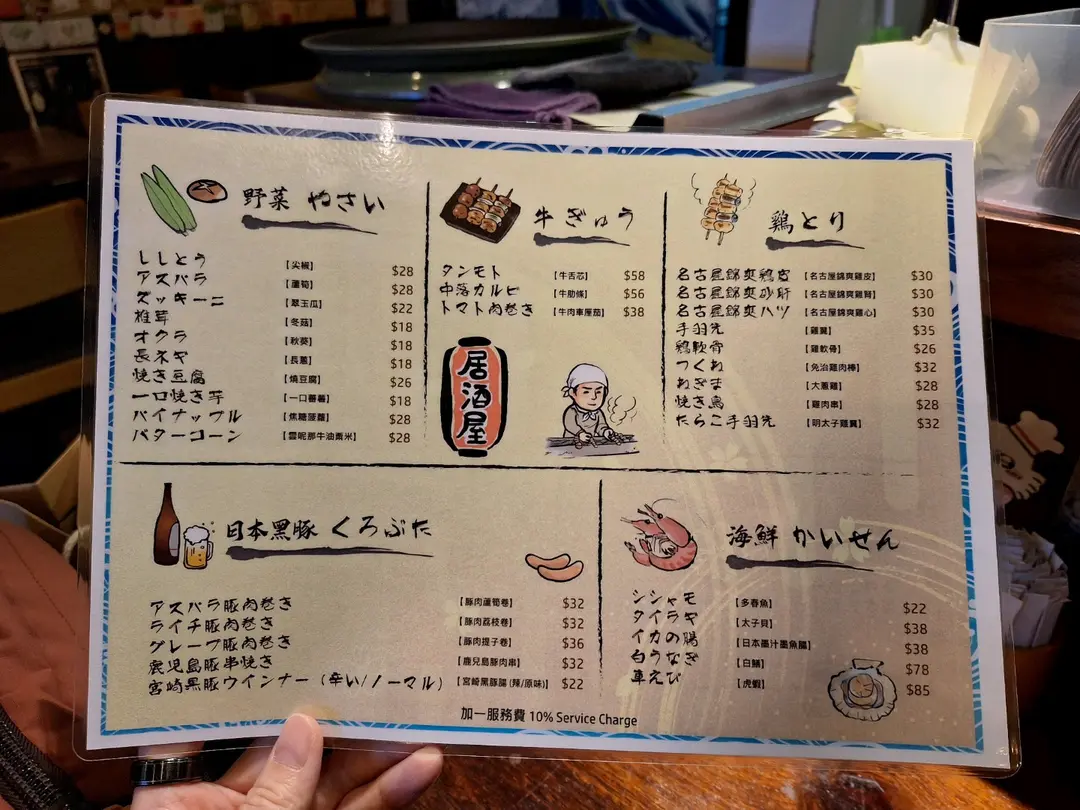 野菜 やさい
ししとう 【尖椒】 $28
アスパラ 【蘆筍】 $28
ズッキーニ 【翠玉瓜】 $22
椎茸 【冬菇】 $18
オクラ 【秋葵】 $18
長ネギ 【長蔥】 $18
焼き豆腐 【燒豆腐】 $26
一口焼き芋 【一口蕃薯】 $18
パイナップル 【焦糖菠蘿】 $28
バターコーン 【雲呢那牛油粟米】 $28
牛 ぎゅう
タンモト 【牛舌芯】 $58
中落カルビ 【牛肋條】 $56
トマト肉巻き 【牛肉車厘茄】 $38
居酒屋
鶏 とり
名古屋錦爽鶏皮 【名古屋錦爽雞皮】 $30
名古屋錦爽砂肝 【名古屋錦爽雞腎】 $30
名古屋錦爽ハツ 【名古屋錦爽雞心】 $30
手羽先 【雞翼】 $35
鶏軟骨 【雞軟骨】 $26
つくね 【免治雞肉棒】 $32
ねぎま 【大蔥雞】 $28
焼き鳥 【雞肉串】 $28
たらこ手羽先 【明太子雞翼】 $32
日本黑豚 くろぶた
アスパラ豚肉巻き 【豚肉蘆筍卷】 $32
ライチ豚肉巻き 【豚肉荔枝卷】 $32
グレープ豚肉巻き 【豚肉提子卷】 $36
鹿児島豚串焼き 【鹿兒島豚肉串】 $32
宮崎黒豚ウインナー（辛い/ノーマル） 【宮崎黑豚腸 (辣/原味)】 $22
海鮮 かいせん
シシャモ 【多春魚】 $22
タイラギ 【太子貝】 $38
イカの腸 【日本墨汁墨魚腸】 $38
白うなぎ 【白鱔】 $78
車えび 【虎蝦】 $85
加一服務費 10% Service Charge